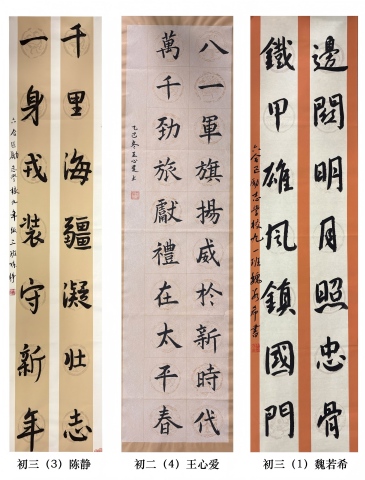 千里海疆凝壮志
一身戎装守新年
八一軍旗揚威於新時代
萬千勁旅獻禮在太平春
乙巳冬王心愛上
邊關明月照忠骨
鐵甲雄风鎮國門
初三（3）陈静
初二（4）王心爱
初三（1）魏若希